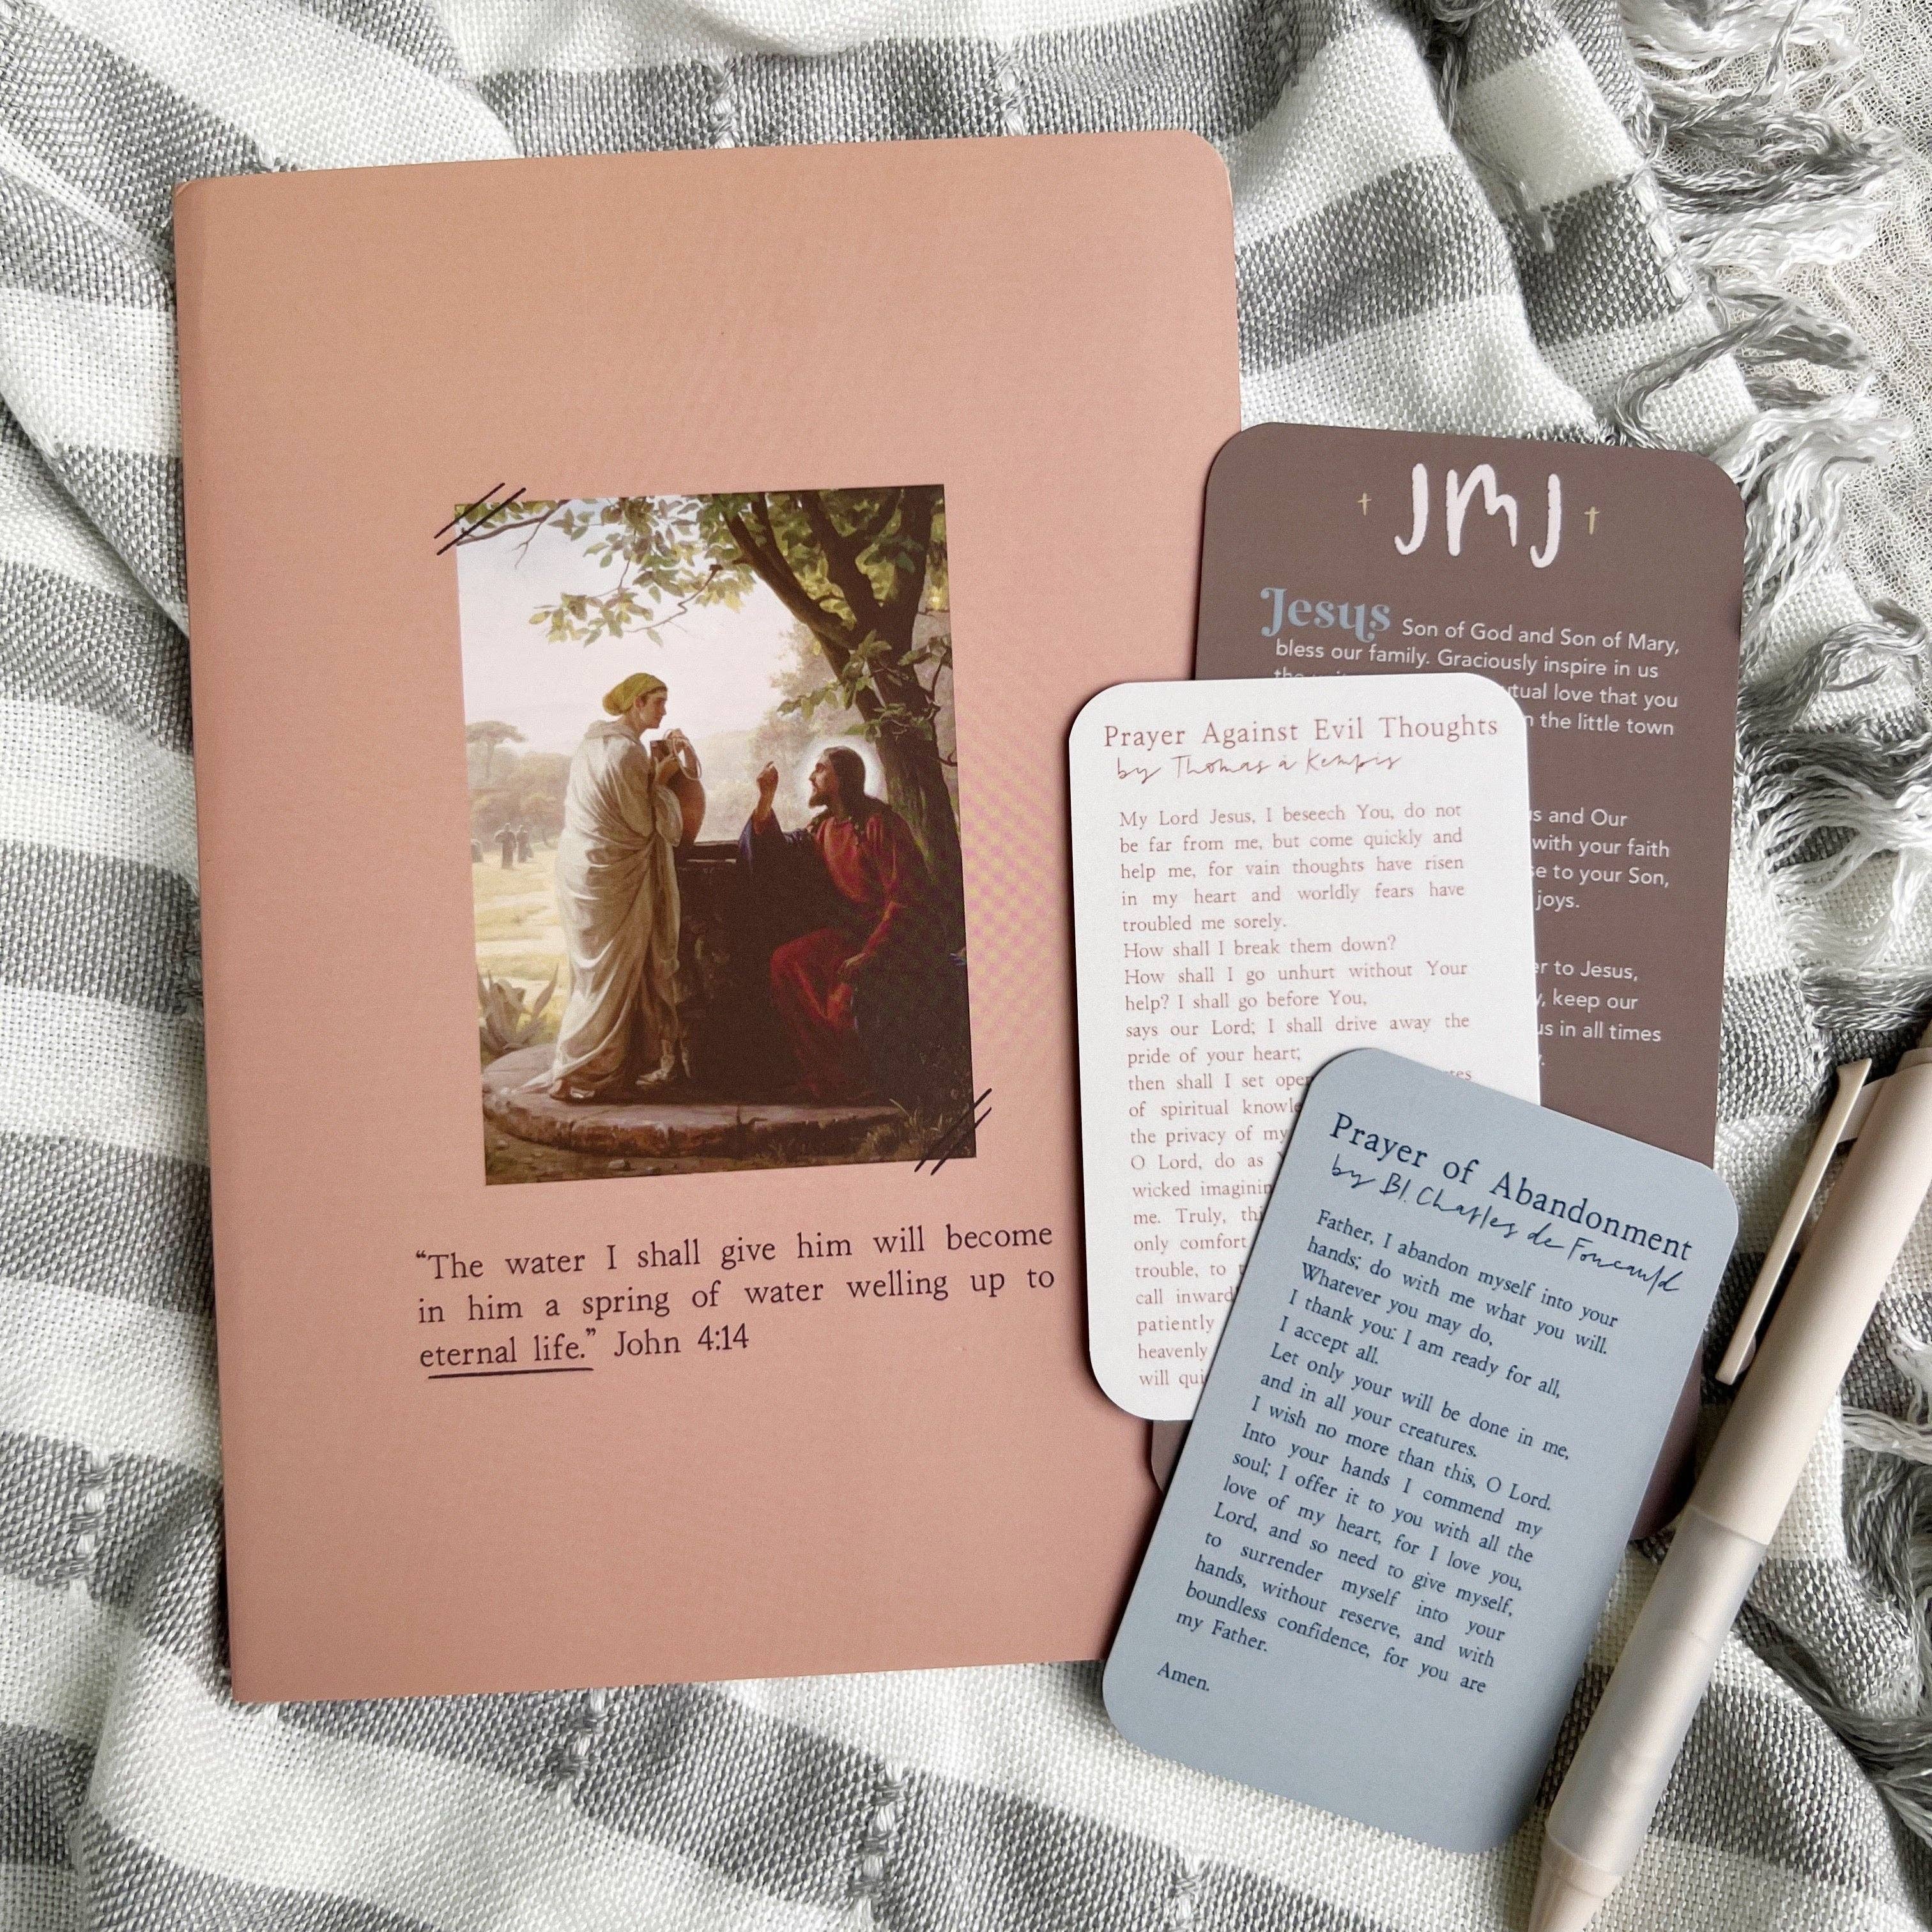 “The water I shall give him will become
in him a spring of water welling up to
eternal life.” John 4:14
JMJ
Jesus Son of God and Son of Mary,
bless our family. Graciously inspire in us
tual love that you
the little town
s and Our
with your faith
e to your Son,
joys.
er to Jesus,
keep our
us in all times
Prayer Against Evil Thoughts
by Thomas à Kempis
My Lord Jesus, I beseech You, do not
be far from me, but come quickly and
help me, for vain thoughts have risen
in my heart and worldly fears have
troubled me sorely.
How shall I break them down?
How shall I go unhurt without Your
help? I shall go before You,
says our Lord; I shall drive away the
pride of your heart;
then shall I set open
of spiritual knowle
the privacy of my
O Lord, do as
wicked imaginin
me. Truly, thi
only comfort
trouble, to
call inward
patiently
heavenly
will qui
Prayer of Abandonment
by Bl. Charles de Foucauld
Father, I abandon myself into your
hands; do with me what you will.
Whatever you may do,
I thank you: I am ready for all,
I accept all.
Let only your will be done in me,
and in all your creatures.
I wish no more than this, O Lord.
Into your hands I commend my
soul; I offer it to you with all the
love of my heart, for I love you,
Lord, and so need to give myself,
to surrender myself into your
hands, without reserve, and with
boundless confidence, for you are
my Father.
Amen.